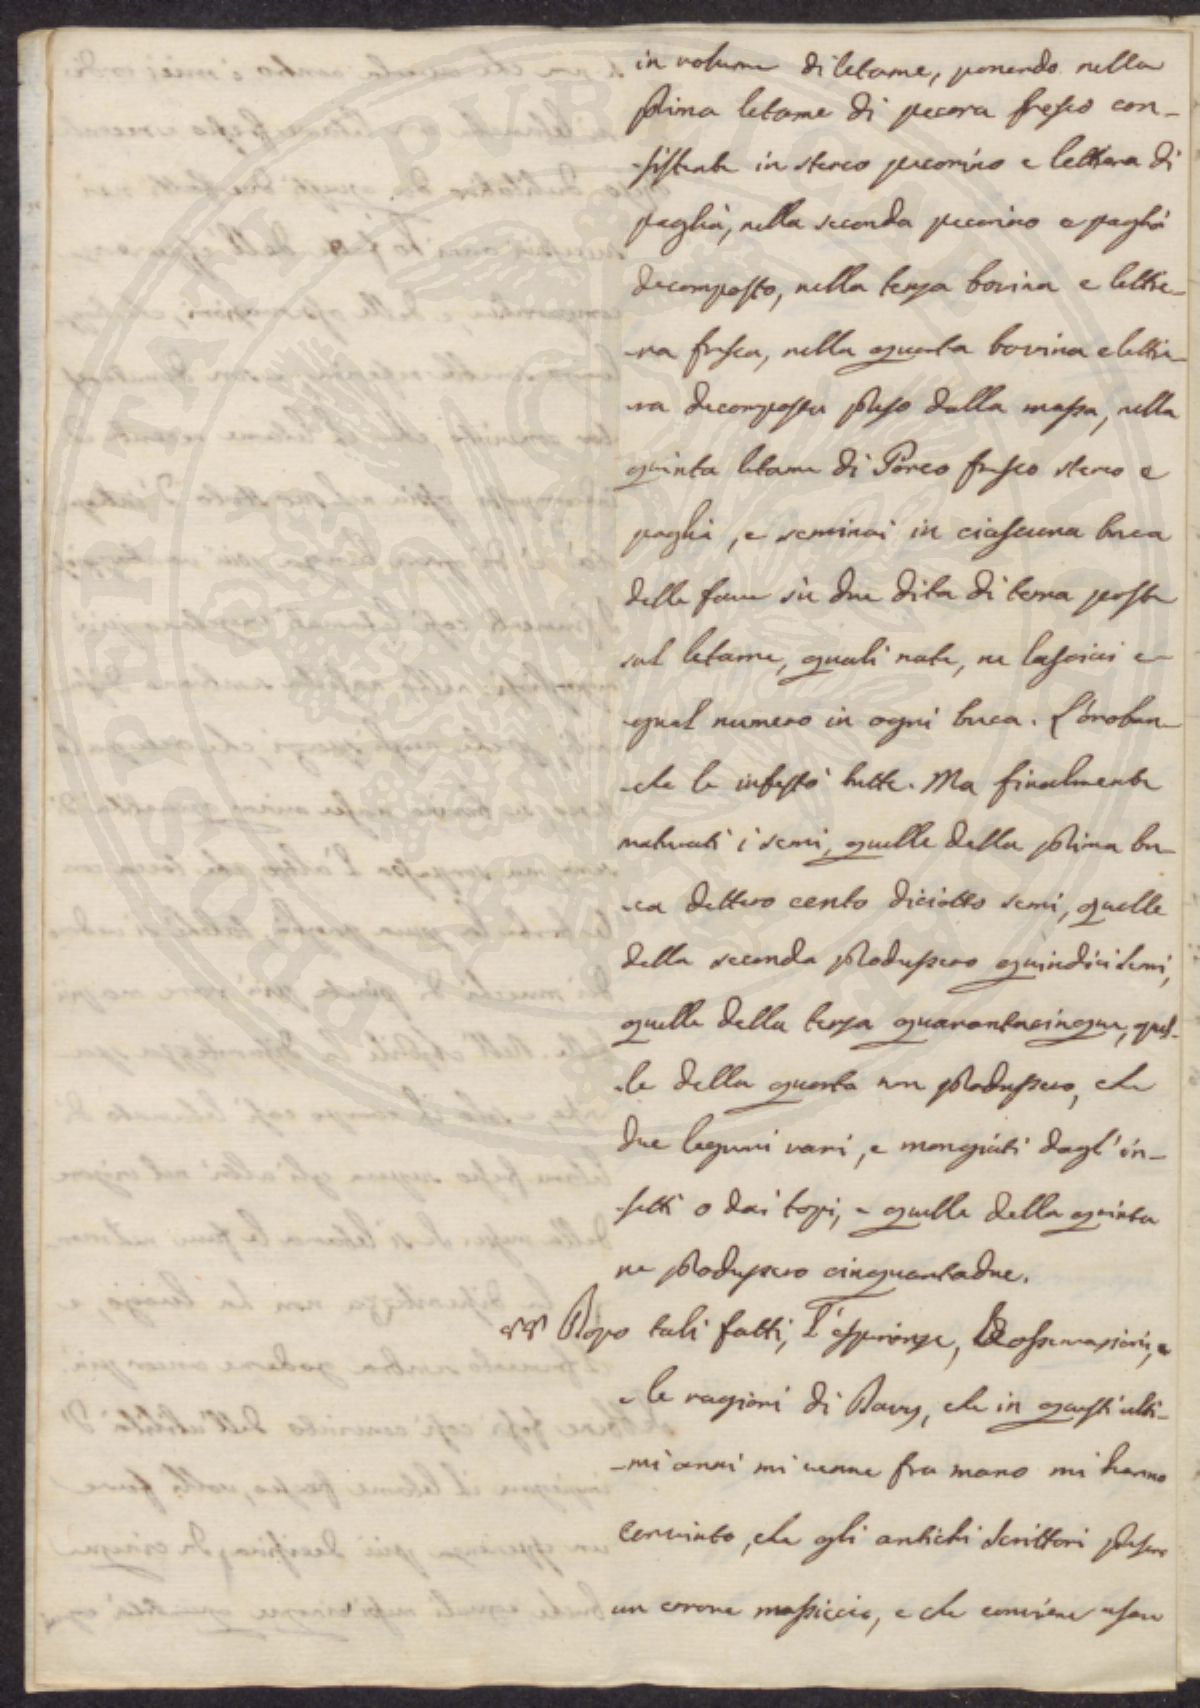 in volume di letame, ponendo nella
prima letame di pecora fresco con-
-sistente in sterco pecorino e lettiera di
paglia, nella seconda pecorino e paglia
decomposto, nella terza bovina e lettie-
-ra fresca, nella quarta bovina e lettie-
-ra decomposta preso dalla massa, nella
quinta letame di Porco fresco sterco e
paglia, e seminai in ciascuna buca
delle fave sù due dita di terra poste
sul letame, quali nate, ne lasciai e-
-gual numero in ogni buca. L'oroban-
-che le infestò tutte. Ma finalmente
maturati i semi, quelle della prima bu-
-ca dettero cento diciotto semi, quelle
della seconda produssero quindici semi,
quelle della terza quarantacinque, quel-
-le della quarta non produssero, che
due legumi vani, e mangiati dagl'in-
-setti o dai topi, e quelle della quinta
ne produssero cinquantadue.
Dopo tali fatti, l'esperienze, osservazioni, e
e le ragioni di Davy, che in questi ulti-
-mi anni mi venne fra mano mi hanno
convinto, che gli antichi scrittori presero
un errore massiccio, e che conviene usare
PROSPERITATI PUBLICAE